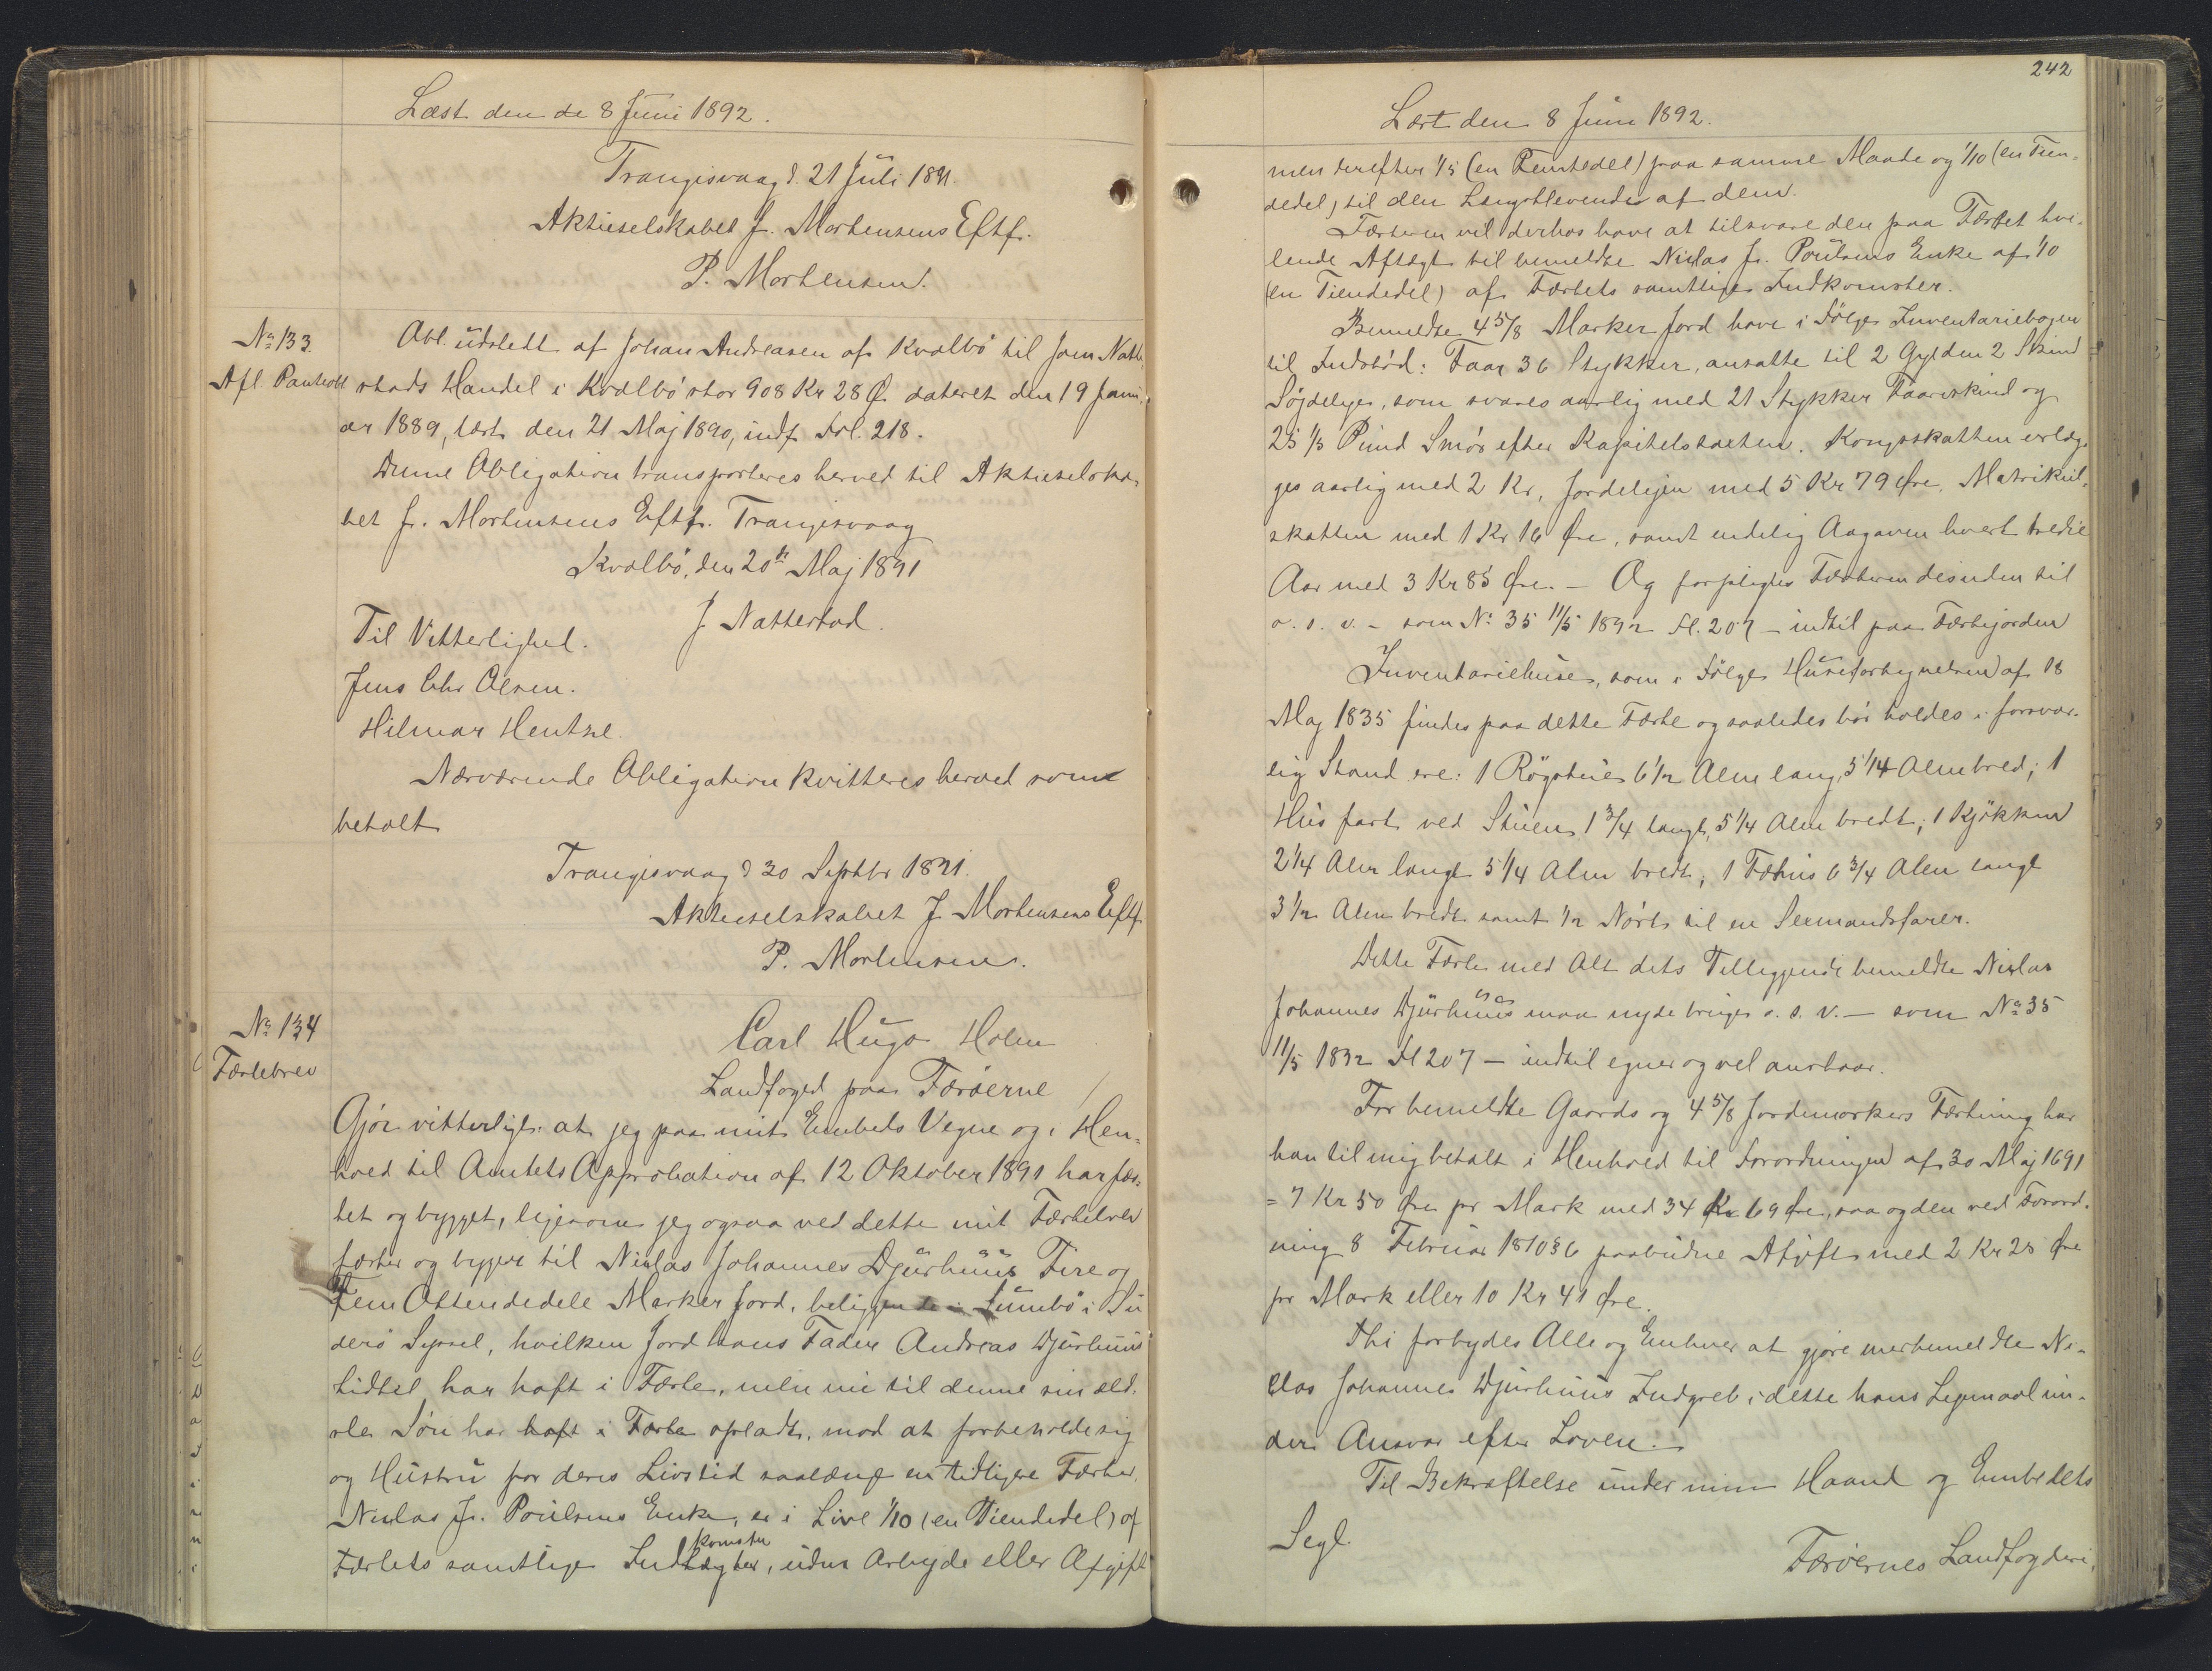 Læst den de 8 Juni 1892.
Trangisvaag d. 21 Juli 1891.
Aktieselskabet J. Mortensens Eftf.
P. Mortensen.
No 133.
Afl. Panteobl
Obl. udstedt af Johan Andreasen af Kvalbö til Joen Natte
stads Handel i Kvalbö stor 908 Kr 28 Ø. dateret den 19 Janu,
ar 1889, læst den 21 Maj 1890, indf. Fol. 218.
Denne Obligation transporteres herved til Aktieselska,
bet J. Mortensens Eftf. Trangisvaag
Kvalbö, den 20de Maj 1891
J Nattestad.
Til Vitterlighed.
Jens Chr Olsen.
Hilmar Hentze.
Nærværende Obligation kvitteres herved som
betalt
Trangisvaag d 30 Septbr 1891.
Aktieselskabet J Mortensens Eftf.
P. Mortensen.
No 134
Fæstebrev
Carl Hugo Holm
Landfoged paa Færöerne
Gjör vitterligt: at jeg paa mit Embeds Vegne og i Hen-
hold til Amtets Approbation af 12 Oktober 1891 har fæs-
tet og bygget, ligesom jeg ogsaa ved dette mit Fæstebrev
fæster og bygger til Niclas Johannes Djurhuus Fire og
Fem Ottendedele Marker Jord, beliggende i Sumbö i Su
derö Syssel, hvilken Jord hans Fader Andreas Djurhuus
hidtil har haft i Fæste, men nu til denne sin æld.
ste Sön har haft i Fæste opladt, mod at forbeholde sig
og Hustru for deres Livstid saalænge en tidligere Fæster,
Niclas Js. Poulsens Enke, er i Live 1/10 (en Tiendedel) af
Fæstets samtlige Indtægter, uden Arbejde eller Afgift
komster
242
Læst den 8 Juni 1892.
men derefter 1/5 (en Femtedel) paa samme Maade og 1/10 (en Tien-
dedel) til den Længstlevende af dem.
Fæsteren vil derhos have at tilsvare den paa Fæstet hvi-
lende Aftægt til bemeldte Niclas Js. Poulsens Enke af 1/10
(en Tiendedel) af Fæstets samtlige Indkomster.
Bemeldte 4 5/8 Marker Jord have i Fölge Inventariebogen
til Indstöd: Faar 36 Stykker, ansatte til 2 Gylden 2 Skind
Söjdeleje, som svares aarlig med 21 Stykker Faareskind og
25 1/3 Pund Smör efter Kapitelstaxten. Kongsskatten erlæg-
ges aarlig med 2 Kr, Jordelejen med 5 Kr 79 Øre, Matrikul,
skatten med 1 Kr 16 Øre, samt endelig Aagaven hvert tredie
Aar med 3 Kr 85 Øre. - Og forpligtes Fæsteren desuden til
o. s. v. - som No 35 11/5 1892 Fl. 207 - indtil paa Fæstejorden
Inventariehuse, som i Fölge Husefortegnelsen af 18
Maj 1835 findes paa dette Fæste og saaledes bör holdes i forsvar-
lig Stand ere: 1 Rögstue 6 1/2 Alen lang, 5 1/4 Alen bred; 1
Hus fast ved Stuen 1 3/4 langt, 5 1/4 Alen bredt; 1 Kjökken
2 1/4 Alen langt 5 1/4 Alen bredt; 1 Fæhus 6 3/4 Alen langt
3 1/2 Alen bredt samt 1/2 Nöst til en Sexmandsfarer.
Dette Fæste med Alt dets Tilliggende bemeldte Niclas
Johannes Djurhuus maa nyde bruge o. s. v. - som No 35
11/5 1892 Fl 207 - indtil egner og vel anstaar.
For bemeldte Gaards og 4 5/8 Jordemarkers Fæstning har
han til mig betalt i Henhold til Forordningen af 30 Maj 1691
= 7 Kr 50 Øre pr Mark med 34 Kr 69 Øre, saa og den ved Forord-
ning 8 Februar 1810 § 6 paabudne Afgift med 2 Kr 25 Øre
pr Mark eller 10 Kr 41 Øre.
Thi forbydes Alle og Enhver at gjöre merbemeldte Ni-
clas Johannes Djurhuus Indgreb i dette hans Lejemaal un-
der Ansvar efter Loven.
Til Bekræftelse under min Haand og Embedets
Segl.
Færöernes Landfogderi,